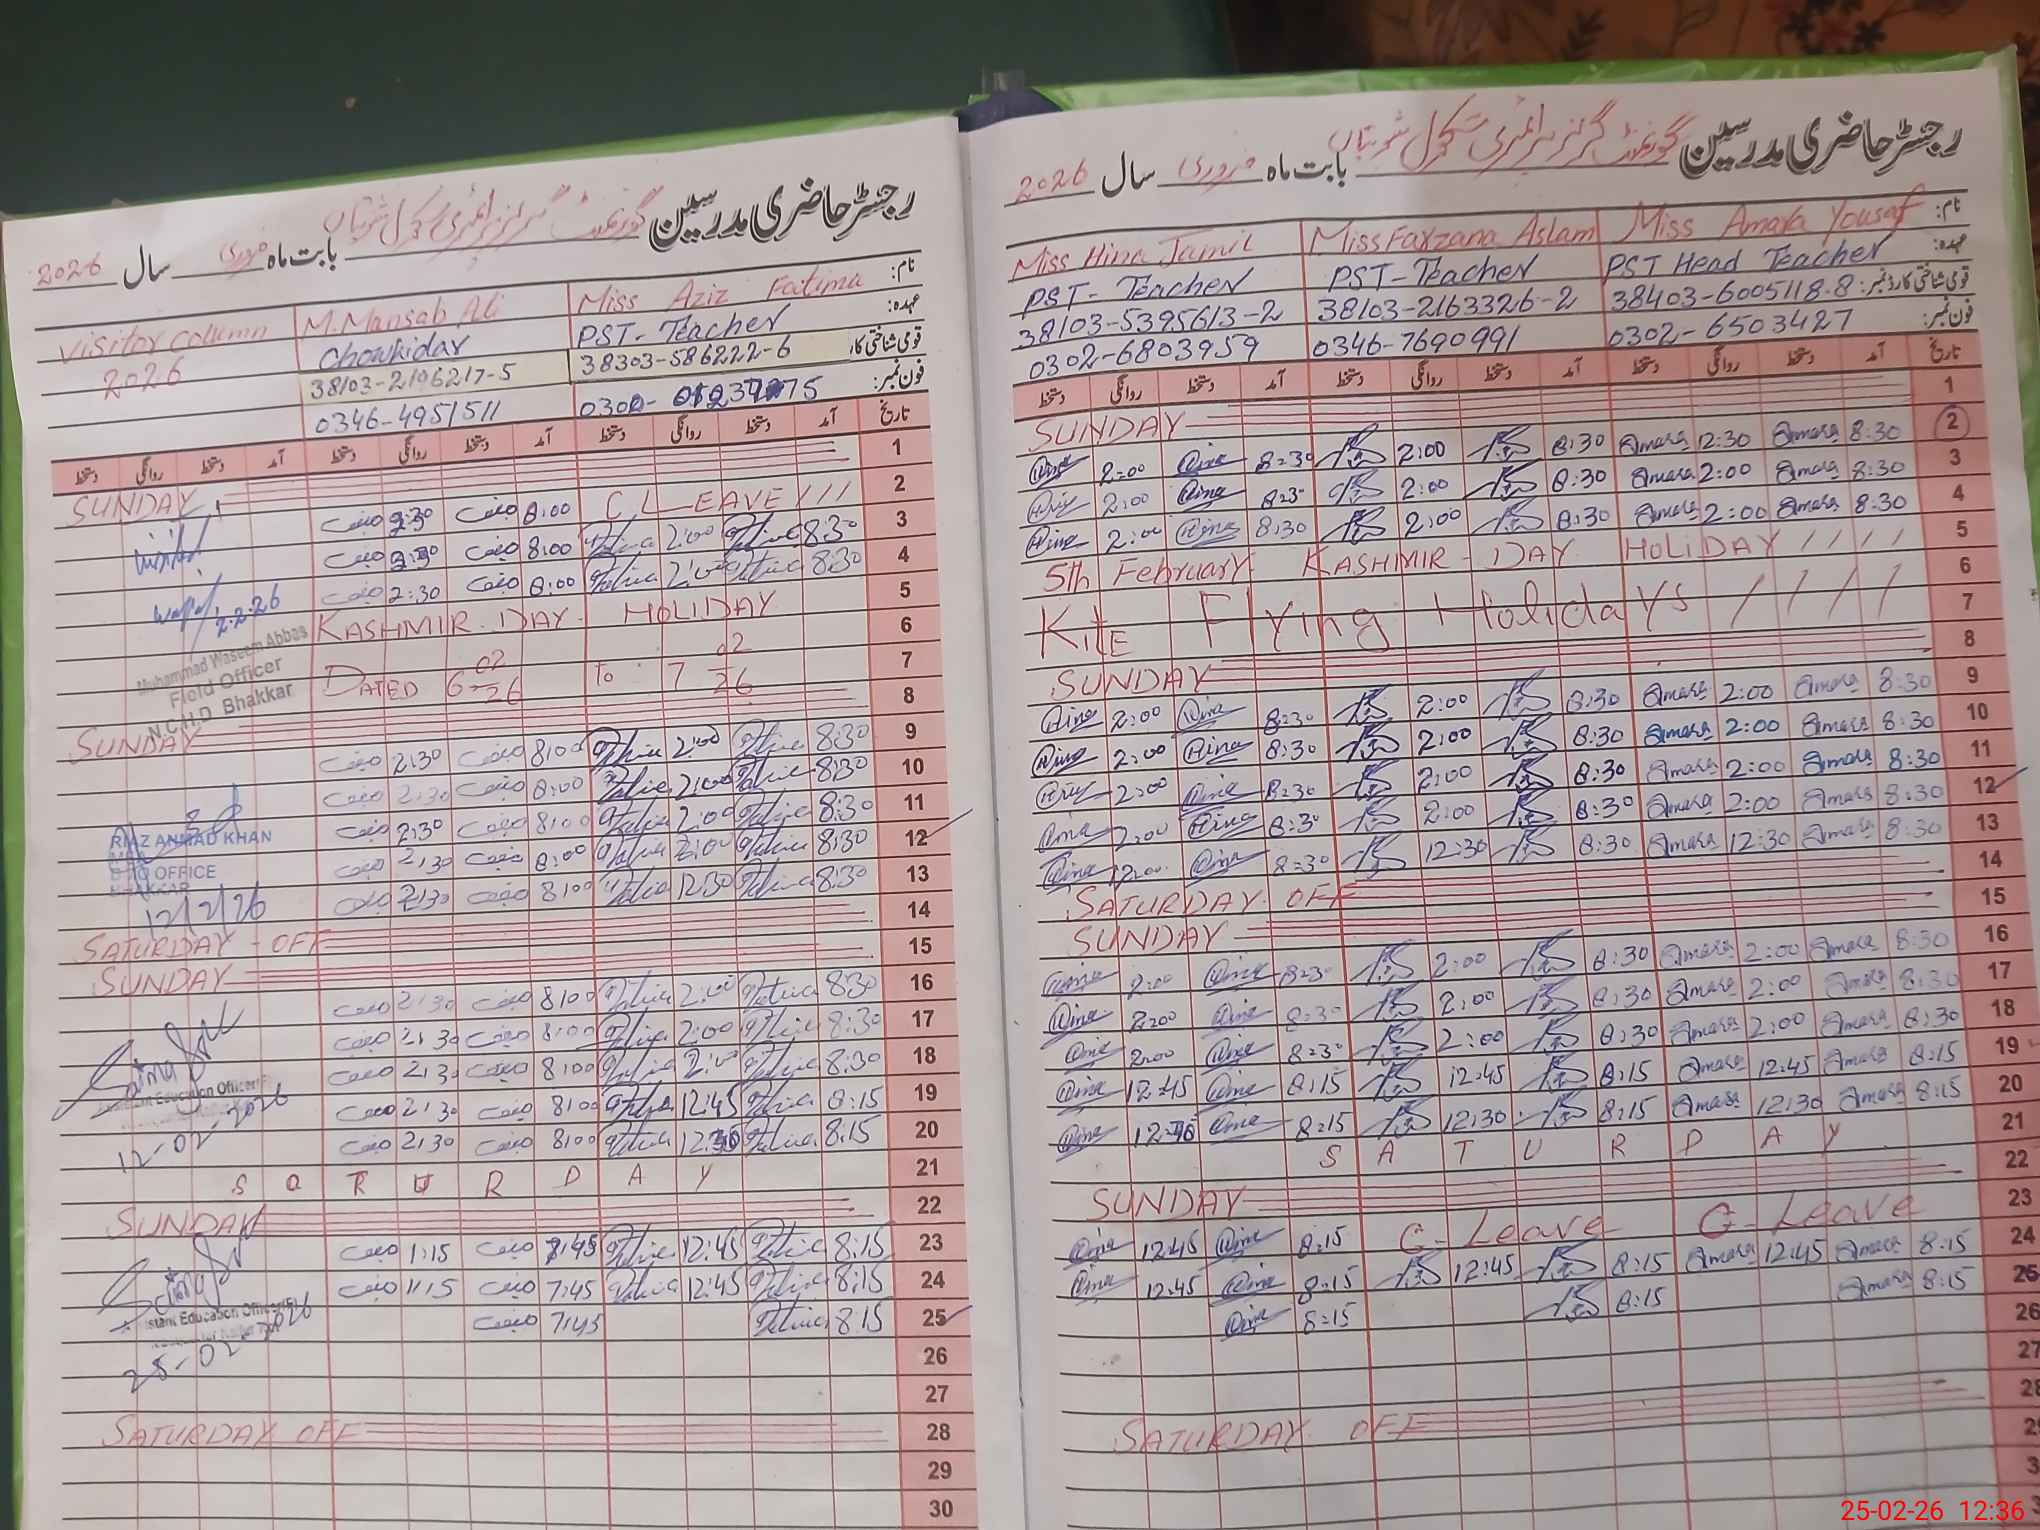 رجسٹر حاضری مدرسین گورنمنٹ گرلز پرائمری سکول بابت ماہ فروری سال 2026
نام: Miss Aziz Fatima M.Mansab Ali Visitor Column
عہدہ: PST-Teacher Chowkidar 2026
قومی شناختی کارڈ 38303-586222-6 38103-2196217-5
فون نمبر: 0346-4951511
تاریخ آمد دستخط روانگی دستخط آمد دستخط روانگی دستخط آمد دستخط روانگی دستخط
1 SUNDAY
2 C LEAVE 8:00
3 8:30 2:00 8:00
4 8:30 2:00 8:00 2:30
5 KASHMIR DAY HOLIDAY
6
7 DATED 6-02-26 To 7-02-26
8 SUNDAY
9 8:30 2:00 8:00 2:30
10 8:30 2:00 8:00 2:30
11 8:30 2:00 8:00 2:30
12 8:30 2:00 8:00 2:30
13 8:30 12:30 8:00 2:30
14 SATURDAY - OFF
15 SUNDAY
16 8:30 2:00 8:00 2:30
17 8:30 2:00 8:00 2:30
18 8:30 2:00 8:00 2:30
19 8:15 12:45 8:00 2:30
20 8:15 8:00 2:30
21 S A T U R D A Y
22 SUNDAY
23 8:15 12:45 7:45 1:15
24 8:15 12:45 7:45 1:15
25 8:15 7:45
26
27
28 SATURDAY OFF
29
30
visited
2.2.26
Muhammad Waseem Abbas
Field Officer
N.C.H.D Bhakkar
RIAZ AHMAD KHAN
OFFICE
BHAKKAR
12/2/26
Assistant Education Officer(F)
12-02-2026
Assistant Education Officer(F)
25-02-2026
رجسٹر حاضری مدرسین گورنمنٹ گرلز پرائمری سکول بابت ماہ فروری سال 2026
نام: Miss Amara Yousaf Miss Farzana Aslam Miss Hina Jamil
عہدہ: PST Head Teacher PST-Teacher PST-Teacher
قومی شناختی کارڈ نمبر: 38403-6005118-8 38103-2163326-2 38103-5395613-2
فون نمبر: 0302-6503427 0346-7690991 0302-6803959
تاریخ آمد دستخط روانگی دستخط آمد دستخط روانگی دستخط آمد دستخط روانگی دستخط
1 SUNDAY
2 8:30 Amara 12:30 Amara 8:30 2:00 8:30 Hina 2:00 Hina
3 8:30 Amara 2:00 Amara 8:30 2:00 8:30 Hina 2:00 Hina
4 8:30 Amara 2:00 Amara 8:30 2:00 8:30 Hina 2:00 Hina
5 5th February KASHMIR - DAY HOLIDAY
6 Kite Flying Holidays
7
8 SUNDAY
9 8:30 Amara 2:00 Amara 8:30 2:00 8:30 Hina 2:00 Hina
10 8:30 Amara 2:00 Amara 8:30 2:00 8:30 Hina 2:00 Hina
11 8:30 Amara 2:00 Amara 8:30 2:00 8:30 Hina 2:00 Hina
12 8:30 Amara 2:00 Amara 8:30 2:00 8:30 Hina 2:00 Hina
13 8:30 Amara 12:30 Amara 8:30 12:30 8:30 Hina Hina
14 SATURDAY OFF
15 SUNDAY
16 8:30 Amara 2:00 Amara 8:30 2:00 8:30 Hina 2:00 Hina
17 8:30 Amara 2:00 Amara 8:30 2:00 8:30 Hina 2:00 Hina
18 8:30 Amara 2:00 Amara 8:30 2:00 8:30 Hina 2:00 Hina
19 8:15 Amara 12:45 Amara 8:15 12:45 8:15 Hina 12:45 Hina
20 8:15 Amara 12:30 Amara 8:15 12:30 8:15 Hina Hina
21 S A T U R D A Y
22 SUNDAY
23 C-Leave C-Leave 8:15 Hina 12:45 Hina
24 8:15 Amara 12:45 Amara 8:15 12:45 8:15 Hina 12:45 Hina
25 8:15 Amara 8:15 8:15 Hina
26
27
28 SATURDAY OFF
25-02-26 12:36